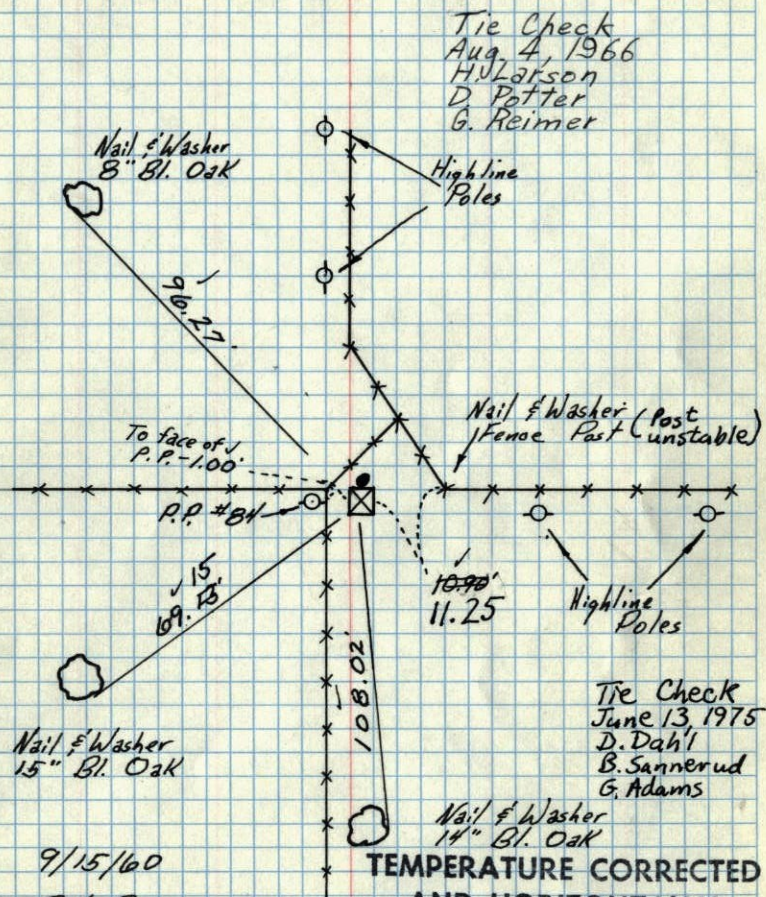 Tie Check
Aug. 4, 1966
H. Larson
D. Potter
G. Reimer
Nail & Washer
8" Bl. Oak
Highline
Poles
96.27
Nail & Washer (Post
Fence Post unstable)
To face of
P.P. - 1.00'
P.P. #84
10.90'
11.25
Highline
Poles
15
69.
108.02'
Tie Check
June 13, 1975
D. Dahl
B. Sannerud
G. Adams
Nail & Washer
15" Bl. Oak
Nail & Washer
14" Bl. Oak
9/15/60
TEMPERATURE CORRECTED